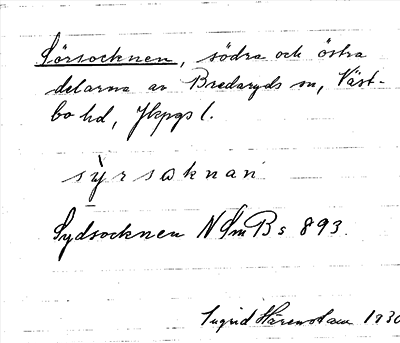 Sörsocknen, södra och östra
delarna av Bredaryds sn, Väst-
bo hd, Jkpgs l.
sỳrsoknan
Sydsocknen NSmBs 893.
Ingrid Härenstam 1930